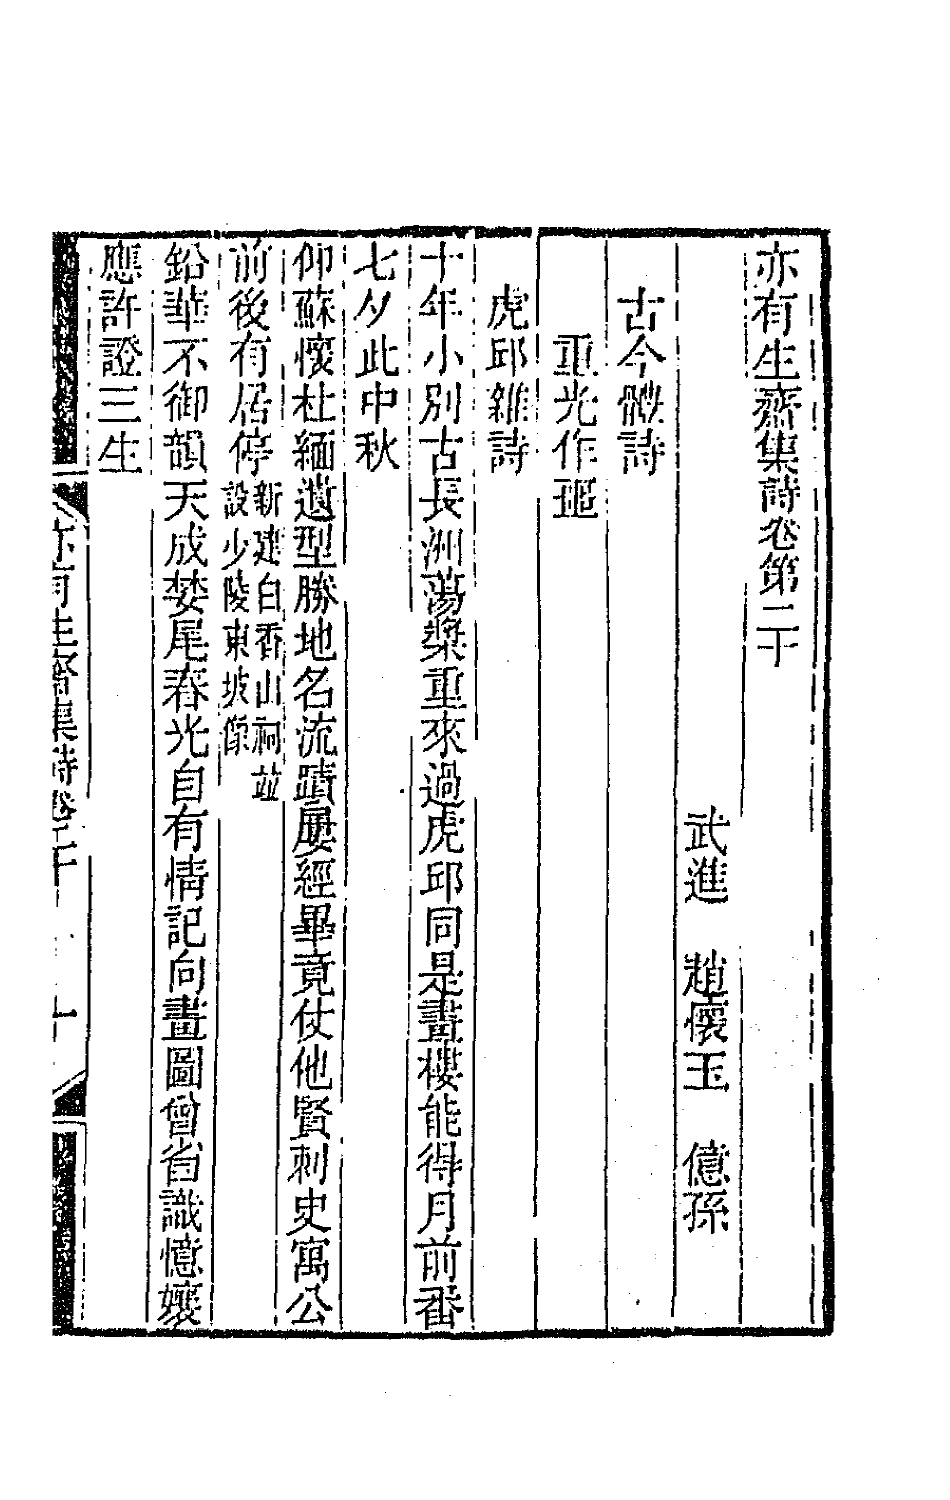 亦有生齋集詩卷第二十
武進　趙懷玉　億孫
古今體詩
重光作噩
虎邱雜詩
十年小別古長洲蕩槳重來過虎邱同是畫樓能得月前番
七夕此中秋
仰蘇懷杜緬遺型勝地名流蹟屢經畢竟仗他賢刺史寓公
前後有居停新建白香山祠並
設少陵東坡像
鉛華不御韻天成婪尾春光自有情記向畫圖曾省識憶孃
應許證三生
亦有生齋集詩卷二十　一